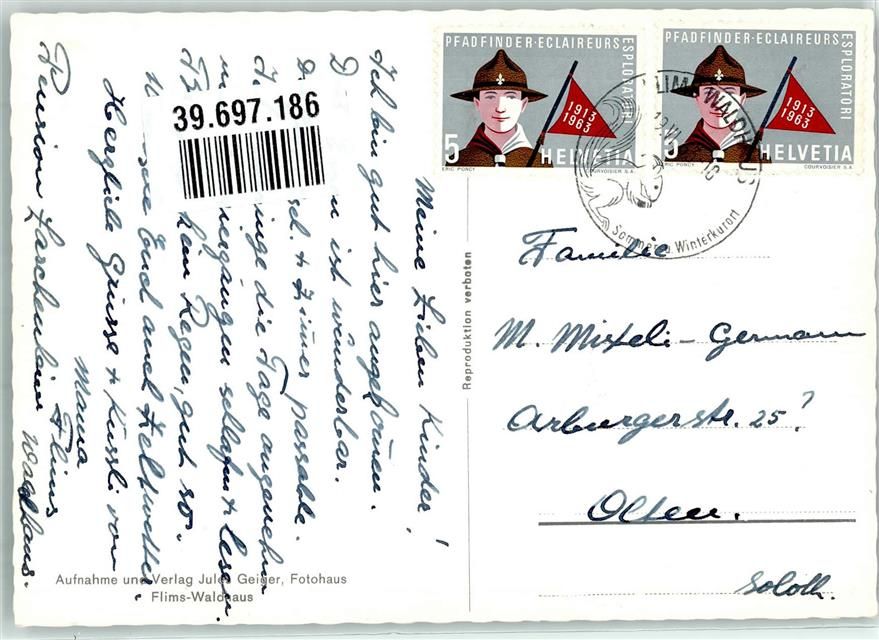 PFADFINDER·ECLAIREURS
ESPLORATORI
1913
1963
5
HELVETIA
ERIC PONCY
COURVOISIER S.A.
PFADFINDER·ECLAIREURS
ESPLORATORI
1913
1963
5
HELVETIA
ERIC PONCY
COURVOISIER S.A.
FLIMS-WALDHAUS
Sommer- Winterkurort
39.697.186
Meine Lieben Kinder!
Ich bin gut hier angekommen.
ist wunderbar.
+ Zimmer passable.
die Tage angenehm
schlafen + lesen.
kein Regen, gut so.
Euch auch Zeltwetter.
Herzliche Grüsse + Küssli von
Mama
Pension Flims
Waldhaus.
Reproduktion verboten
Familie
M. Misteli-Germann
Arburgerstr. 25?
Olten.
Soloth.
Aufnahme und Verlag Jules Geiger, Fotohaus
Flims-Waldhaus